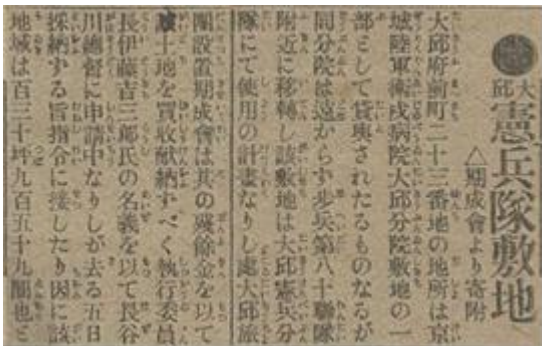 大邱 憲兵隊敷地
△期成會より寄附
大邱府前町二十三番地の地所は京
城陸軍衛戍病院大邱分院敷地の一
部として貸與されたるものなるが
同分院は遠からず步兵第八十聯隊
附近に移轉し該敷地は大邱憲兵分
隊にて使用の計畫なりし處大邱旅
團設置期成會は其の殘餘金を以て
土地を買收献納すべく執行委員
長伊藤吉三郎氏の名義を以て長谷
川總督に申請中なりしが去る五日
採納する旨指令に接したり因に該
地域は百三十坪九百五十九圓也と